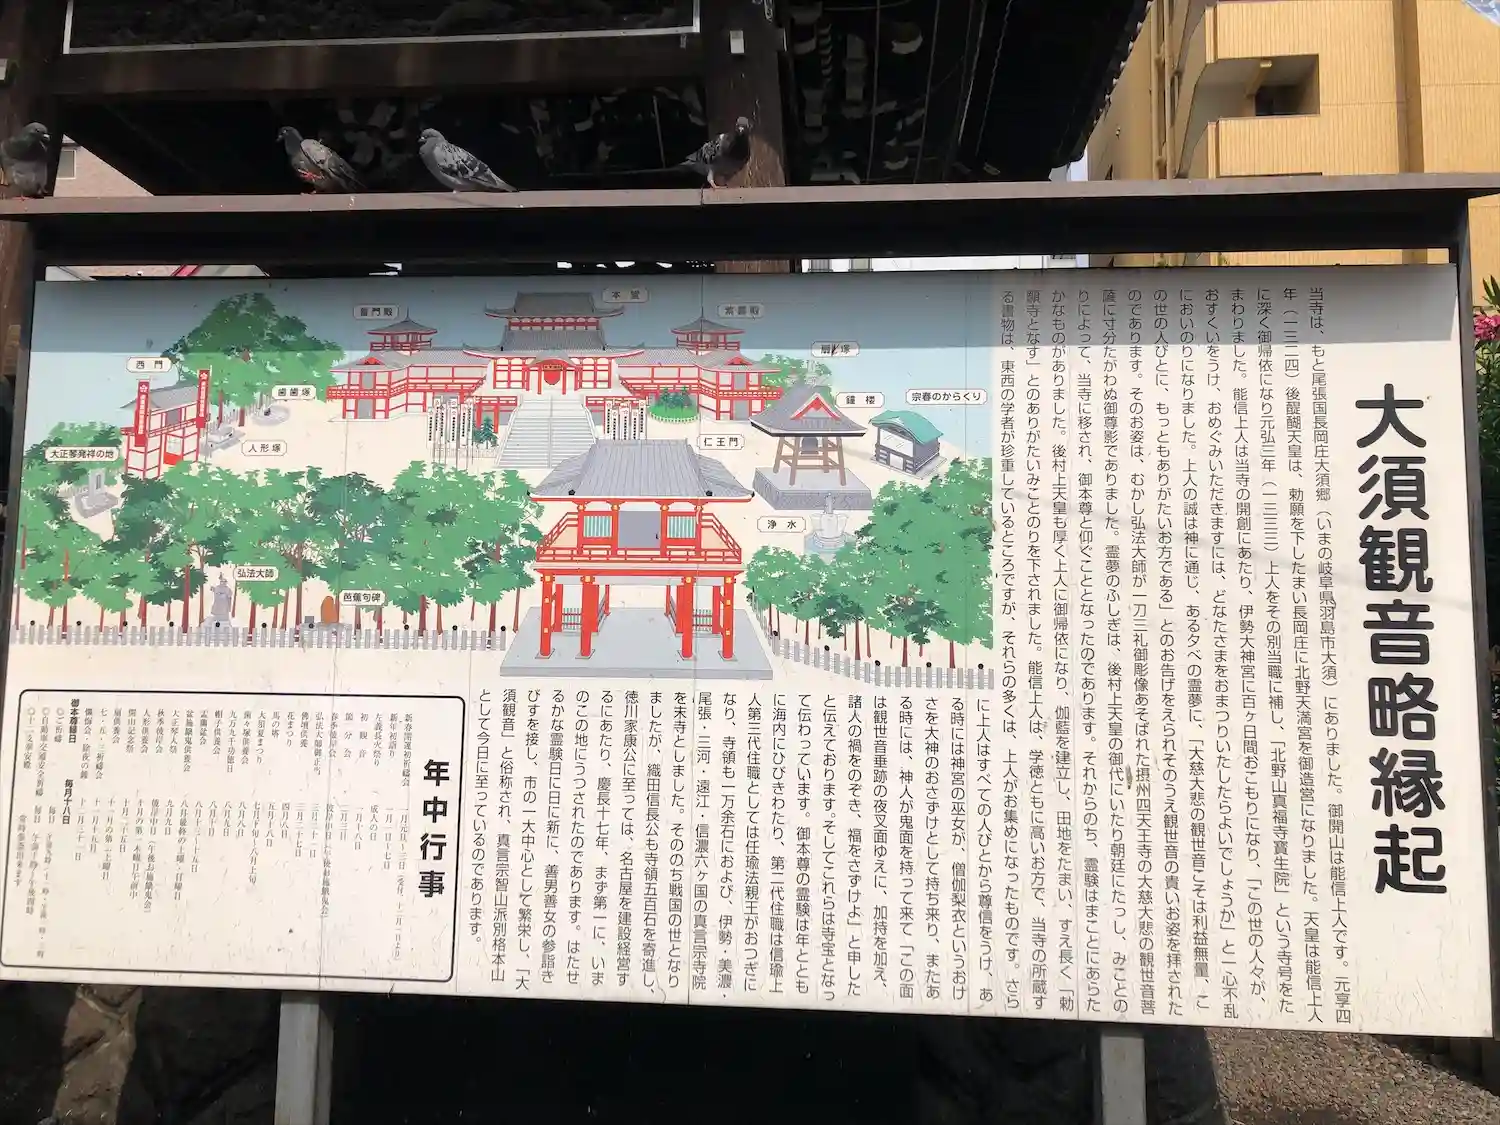 大須観音略縁起
当寺は、もと尾張国長岡庄大須郷（いまの岐阜県羽島市大須）にありました。御開山は能信上人です。元享四
年（一三二四）後醍醐天皇は、勅願を下したまい長岡庄に北野天満宮を御造営になりました。天皇は能信上人
に深く御帰依になり元弘三年（一三三三）上人をその別当職に補し、「北野山真福寺寶生院」という寺号をた
まわりました。能信上人は当寺の開創にあたり、伊勢大神宮に百ヶ日間おこもりになり、「この世の人々が、
おすくいをうけ、おめぐみいただきますには、どなたさまをおまつりいたしたらよいでしょうか」と一心不乱
においのりになりました。上人の誠は神に通じ、ある夕べの霊夢に、「大慈大悲の観世音こそは利益無量、こ
の世の人びとに、もっともありがたいお方である」とのお告げをえられそのうえ観世音の貴いお姿を拝された
のであります。そのお姿は、むかし弘法大師が一刀三礼御彫像あそばれた摂州四天王寺の大慈大悲の観世音菩
薩に寸分たがわぬ御尊影でありました。霊夢のふしぎは、後村上天皇の御代にいたり朝廷にたっし、みことの
りによって、当寺に移され、御本尊と仰ぐこととなったのであります。それからのち、霊験はまことにあらた
かなものがありました。後村上天皇も厚く上人に御帰依になり、伽藍を建立し、田地をたまい、すえ長く「勅
願寺となす」とのありがたいみことのりを下されました。能信上人は、学徳ともに高いお方で、当寺の所蔵す
る書物は、東西の学者が珍重しているところですが、それらの多くは、上人がお集めになったものです。さら
に上人はすべての人びとから尊信をうけ、あ
る時には神宮の巫女が、僧伽梨衣というおけ
さを大神のおさずけとして持ち来り、またあ
る時には、神人が鬼面を持って来て「この面
は観世音垂跡の夜叉面ゆえに、加持を加え、
諸人の禍をのぞき、福をさずけよ」と申した
と伝えております。そしてこれらは寺宝となっ
て伝わっています。御本尊の霊験は年ととも
に海内にひびきわたり、第二代住職は信瑜上
人第三代住職としては任瑜法親王がおつぎに
なり、寺領も一万余石におよび、伊勢・美濃・
尾張・三河・遠江・信濃六ヶ国の真言宗寺院
を末寺としました。そののち戦国の世となり
ましたが、織田信長公も寺領五百石を寄進し、
徳川家康公に至っては、名古屋を建設経営す
るにあたり、慶長十七年、まず第一に、いま
のこの地にうつされたのであります。はたせ
るかな霊験日に日に新に、善男善女の参詣き
びすを接し、市の一大中心として繁栄し、「大
須観音」と俗称され、真言宗智山派別格本山
として今日に至っているのであります。
本堂
普門殿
紫雲殿
西門
歯歯塚
人形塚
大正琴発祥の地
扇塚
鐘楼
宗春のからくり
仁王門
浄水
弘法大師
芭蕉句碑
年中行事
新春開運初祈祷会 一月元旦〜三日
新年初詣り 一月一日〜七日
左義長火祭り 成人の日
初観音 一月十八日
節分会 二月三日
弘法大師御正当 三月二十一日
佛壇供養 三月二十七日
花まつり 四月八日
馬の塔 五月十八日
大須夏まつり 七月下旬〜八月上旬
歯々塚供養会 八月八日
九万九千功徳日 八月九日
帽子供養会 八月十日
大正琴人祭 九月九日
人形供養会 十月の第一木曜日午前中
開山記念祭 十月二十五日
扇供養会
七・五・三祈祷会
懺悔会・除夜の鐘 十二月三十一日
御本尊縁日 毎月十八日
◎ご祈祷 毎日
◎自動車交通安全祈祷 毎日